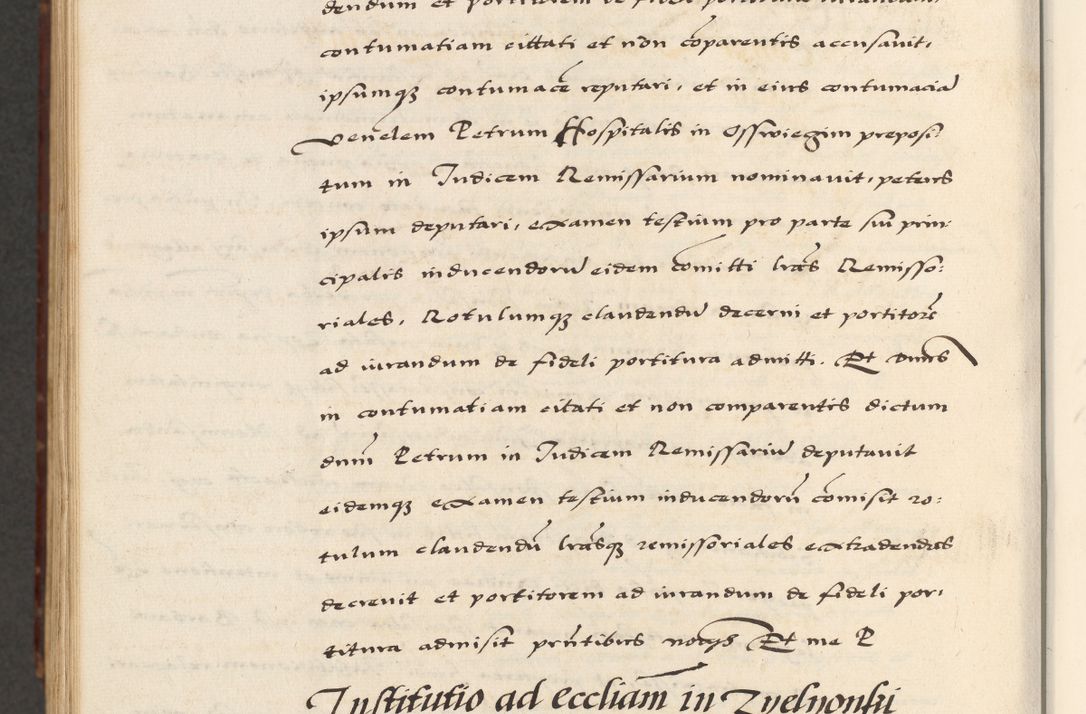 dendum et portitorem de fideli portitura iurandum
contumatiam cittati et non cōparentis accusauit,
ipsumqȝ contumacē reputari, et in eius contumaciā
venelem Petrum Hospitalis in Osswiegim preposi-
tum in Iudicem Remissarium nominauit, petens
ipsum deputari, examen testium pro parte sui prin-
cipalis inducendorū eidem cōmitti lrās Remisso:
riales, Rotulumqȝ claudendū decerni et portitorē
ad iurandum de fideli portitura admitti. Et Dnus
in contumatiam citati et non comparentis dictum
dnūm Petrum in Iudicem Remissariū deputauit
eidemqȝ examen testium inducendorū cōmisit ro:
tulum claudendū lrāsqȝ remissoriales extradendas
decreuit et portitorem ad iurandum de fideli por,
titura admisit prn̄tibus Et me P
Institutio ad eccliam in Zyelyonki